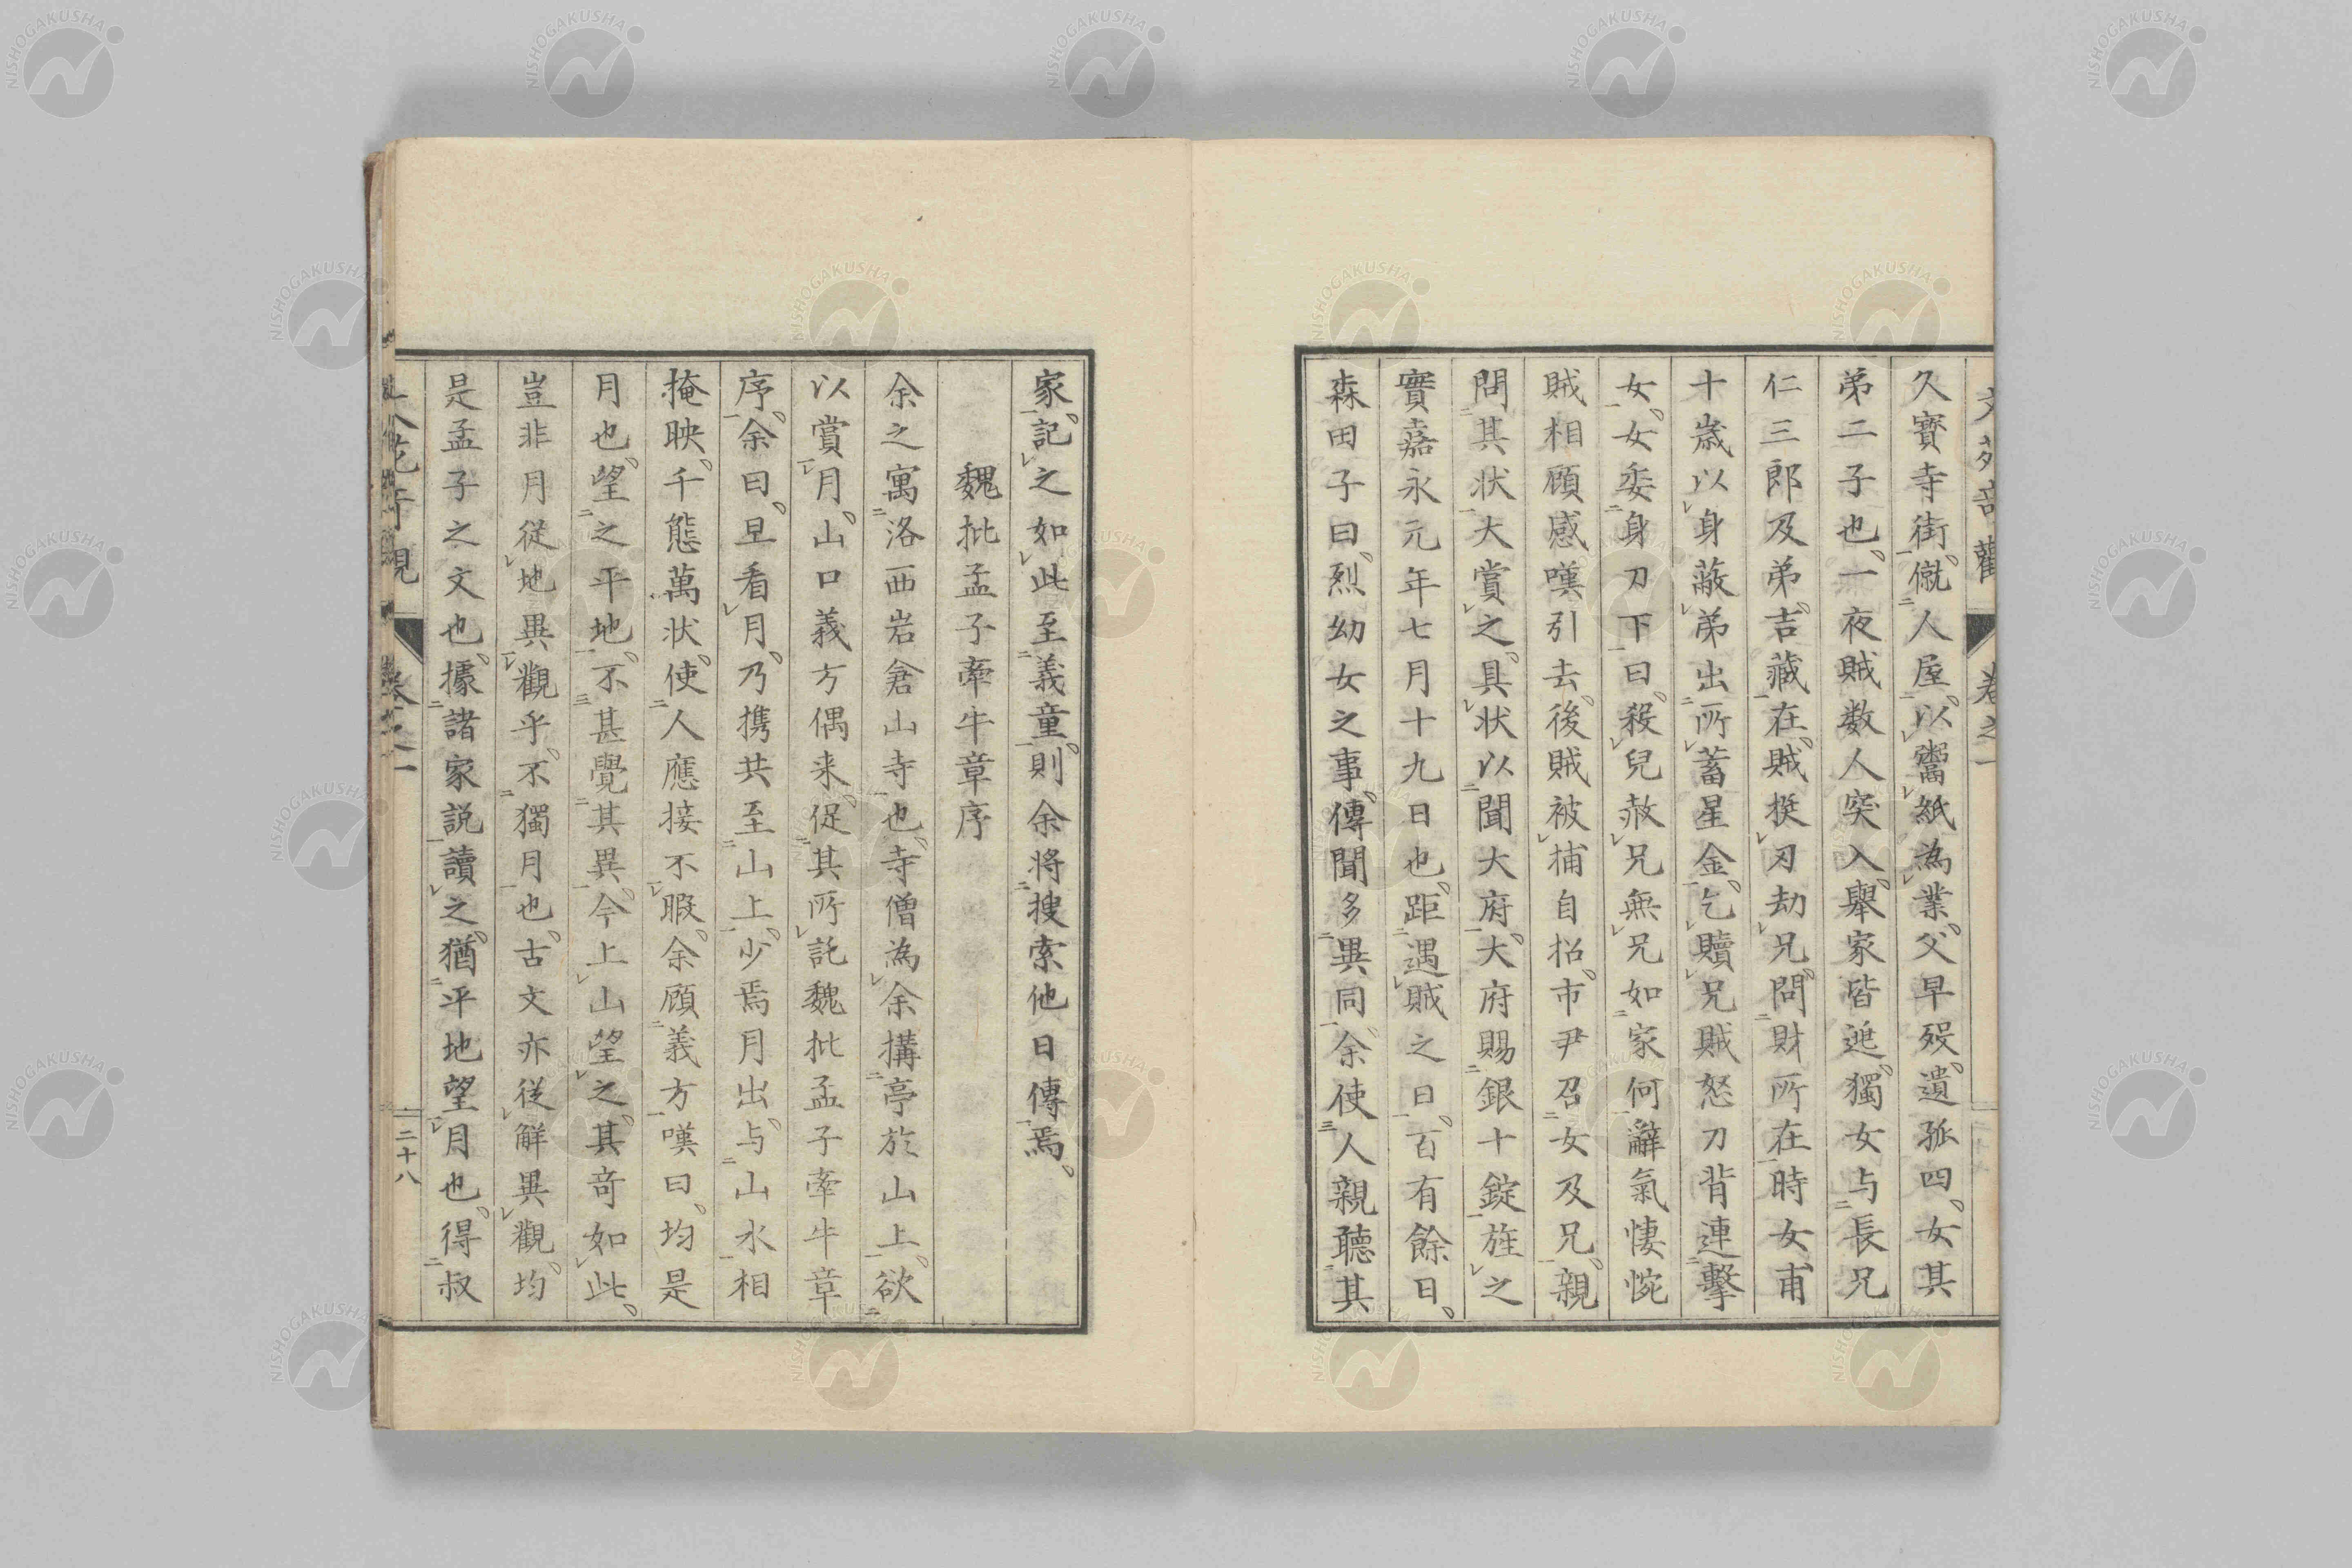 久寶寺街僦人屋以鬻紙為業父早歿遺孤四女其
弟二子也一夜賊数人突入舉家皆逃獨女与長兄
仁三郎及弟吉藏在賊挺刃劫兄問財所在時女甫
十歳以身蔽弟出所蓄星金乞贖兄賊怒刀背連擊
女女委身刀下曰殺兒赦兄無兄如家何辭氣悽惋
賊相顧感嘆引去後賊被捕自招市尹召女及兄親
問其状大賞之具状以聞大府大府賜銀十錠旌之
實嘉永元年七月十九日也距遇賊之日百有餘日
森田子曰烈幼女之事傳聞多異同余使人親聽其
家記之如此至義童則余将搜索他日傳焉
魏批孟子牽牛章序
余之寓洛西岩倉山寺也寺僧為余搆亭於山上欲
以賞月山口義方偶来促其所託魏批孟子牽牛章
序余曰早看月乃携共至山上少焉月出与山水相
掩映千態萬状使人應接不暇余顧義方嘆曰均是
月也望之平地不甚覺其異今上山望之其竒如此
豈非月従地異觀乎不獨月也古文亦従解異觀均
是孟子之文也據諸家説讀之猶平地望月也得叔
二十八
NISHOGAKUSHA